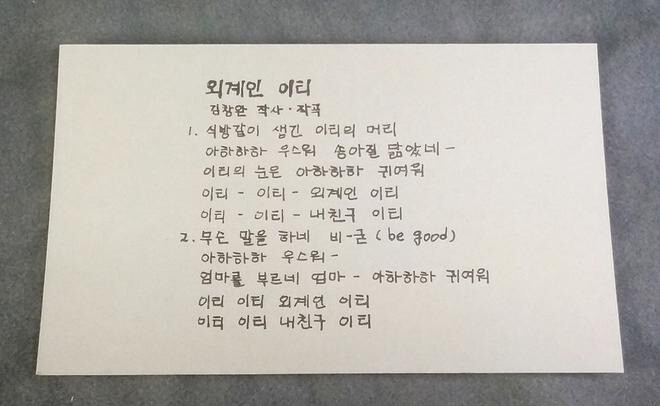 외계인 이티
김창완 작사·작곡
1. 식빵같이 생긴 이티의 머리
아하하하 우스워 송아질 닮았네-
이티의 눈은 아하하하 귀여워
이티 - 이티 - 외계인 이티
이티 - 이티 - 내친구 이티
2. 무슨 말을 하네 비-굳 (be good)
아하하하 우스워-
엄마를 부르네 엄마 - 아하하하 귀여워
이티 이티 외계인 이티
이티 이티 내친구 이티